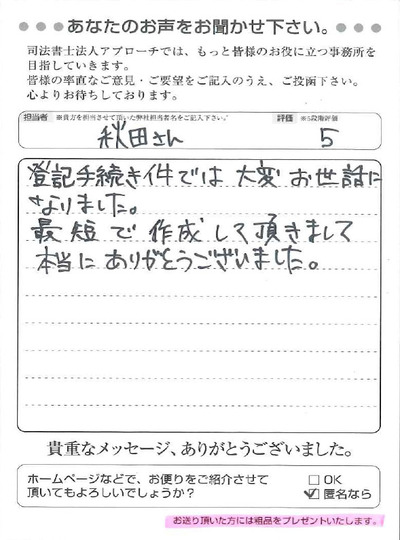 ●●●あなたのお声をお聞かせ下さい。●●●
司法書士法人アプローチでは、もっと皆様のお役に立つ事務所を
目指していきます。
皆様の率直なご意見・ご要望をご記入のうえ、ご投函下さい。
心よりお待ちしております。
担当者 ※貴方を担当させて頂いた弊社担当者名をご記入下さい。 評価 ※5段階評価
秋田さん 5
登記手続き件では 大変 お世話に
なりました。
最短で 作成して頂きまして
本当に ありがとうございました。
貴重なメッセージ、ありがとうございました。
ホームページなどで、お便りをご紹介させて
頂いてもよろしいでしょうか?
□ OK
☑ 匿名なら
お送り頂いた方には粗品をプレゼントいたします。